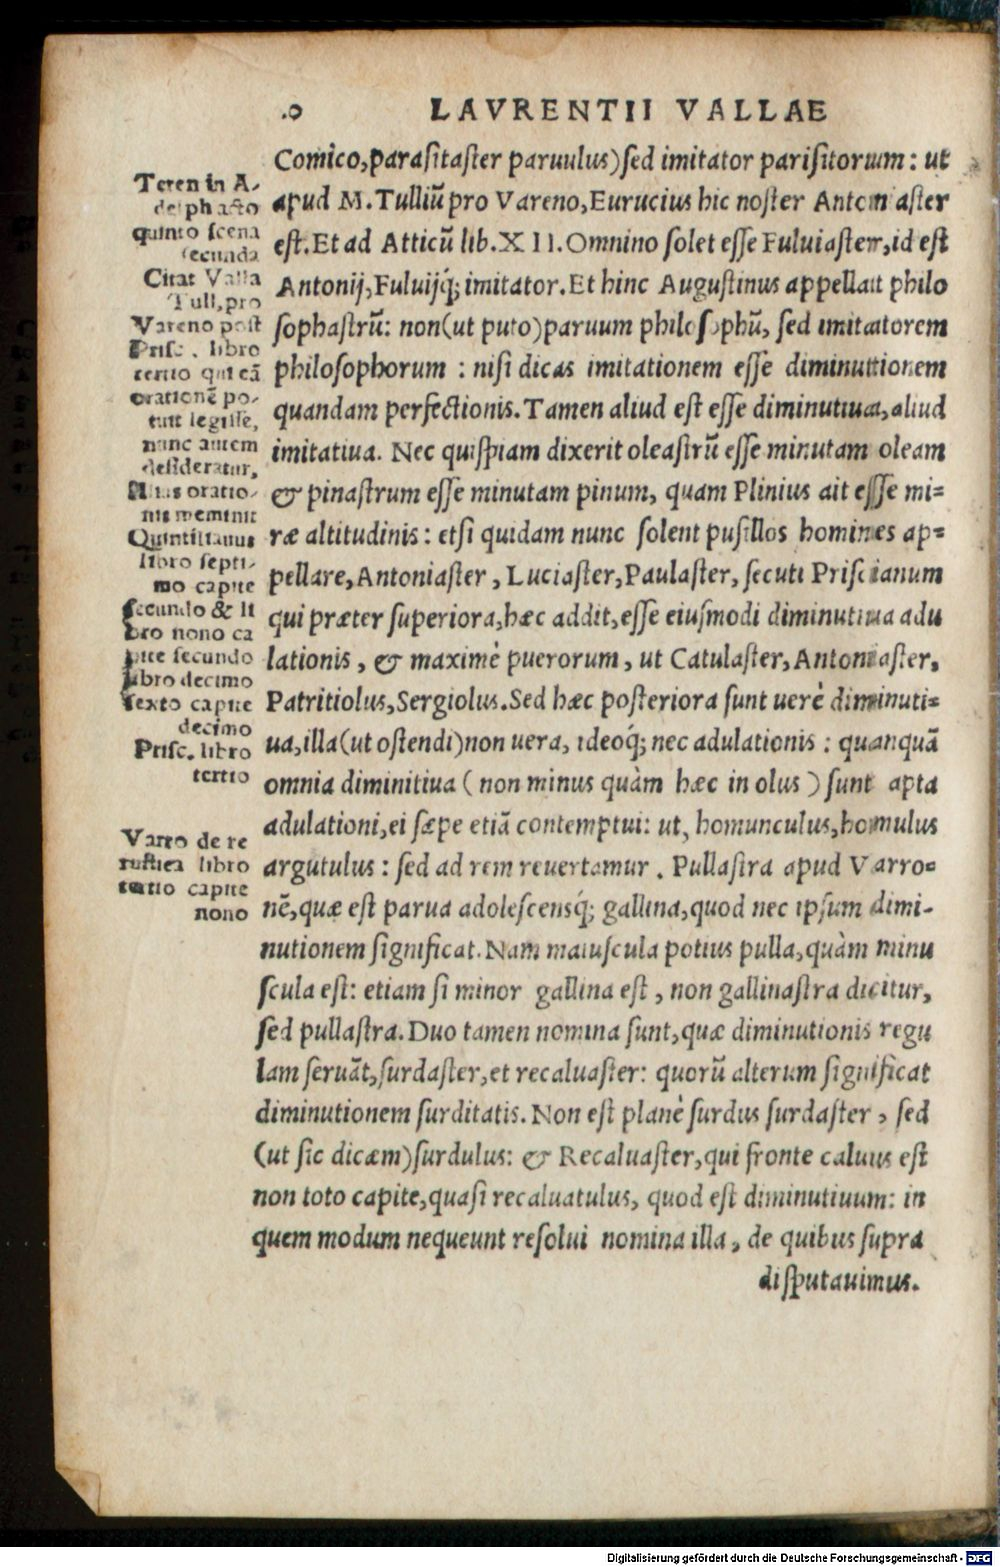 LAVRENTII VALLAE
Comico,parasitaster paruulus)sed imitator parisitorum: ut
apud M.Tulliũ pro Vareno,Eurucius hic noster Antoniaster
est.Et ad Atticũ lib.XII.Omnino solet esse Fuluiaster,id est
Antonij,Fuluijq́; imitator.Et hinc Augustinus appellat philo
sophastrũ: non(ut puto)paruum philosophũ, sed imitatorem
philosophorum : nisi dicas imitationem esse diminutionem
quandam perfectionis.Tamen aliud est esse diminutiua,aliud
imitatiua. Nec quispiam dixerit oleastrũ esse minutam oleam
& pinastrum esse minutam pinum, quam Plinius ait esse mi=
ræ altitudinis: etsi quidam nunc solent pusillos homines ap=
pellare,Antoniaster, Luciaster,Paulaster, secuti Priscianum
qui præter superiora,hæc addit,esse eiusmodi diminutiua adu
lationis, & maximè puerorum, ut Catulaster,Antoniaster,
Patritiolus,Sergiolus.Sed hæc posteriora sunt uerè diminuti=
ua,illa(ut ostendi)non uera, ideoq́; nec adulationis: quanquã
omnia diminitiua (non minus quàm hæc in olus) sunt apta
adulationi,ei sæpe etiã contemptui: ut, homunculus,homulus
argutulus: sed ad rem reuertamur. Pullastra apud Varro=
nẽ,quæ est parua adolescensq́; gallina,quod nec ipsum dimi-
nutionem significat. Nam maiuscula potius pulla,quàm minu
scula est: etiam si minor gallina est, non gallinastra dicitur,
sed pullastra.Duo tamen nomina sunt,quæ diminutionis regu
lam seruãt,surdaster,et recaluaster: quorũ alterum significat
diminutionem surditatis. Non est planè surdus surdaster, sed
(ut sic dicæm)surdulus: & Recaluaster,qui fronte caluus est
non toto capite,quasi recaluatulus, quod est diminutiuum: in
quem modum nequeunt resolui nomina illa, de quibus supra
disputauimus.
Teren in A-
delph acto
quinto scena
secunda
Citat Valla
Tull,pro
Vareno post
Prisc. libro
tertio qui eã
orationẽ po-
tuit legisse,
nunc autem
desideratur,
oratio-
nis meminit
Quintilianus
libro septi-
mo capite
secundo & li
bro nono ca
pite secundo
libro decimo
sexto capite
decimo
Prisc. libro
tertio
Varro de re
rustica libro
tertio capite
nono
Digitalisierung gefördert durch die Deutsche Forschungsgemeinschaft - DFG